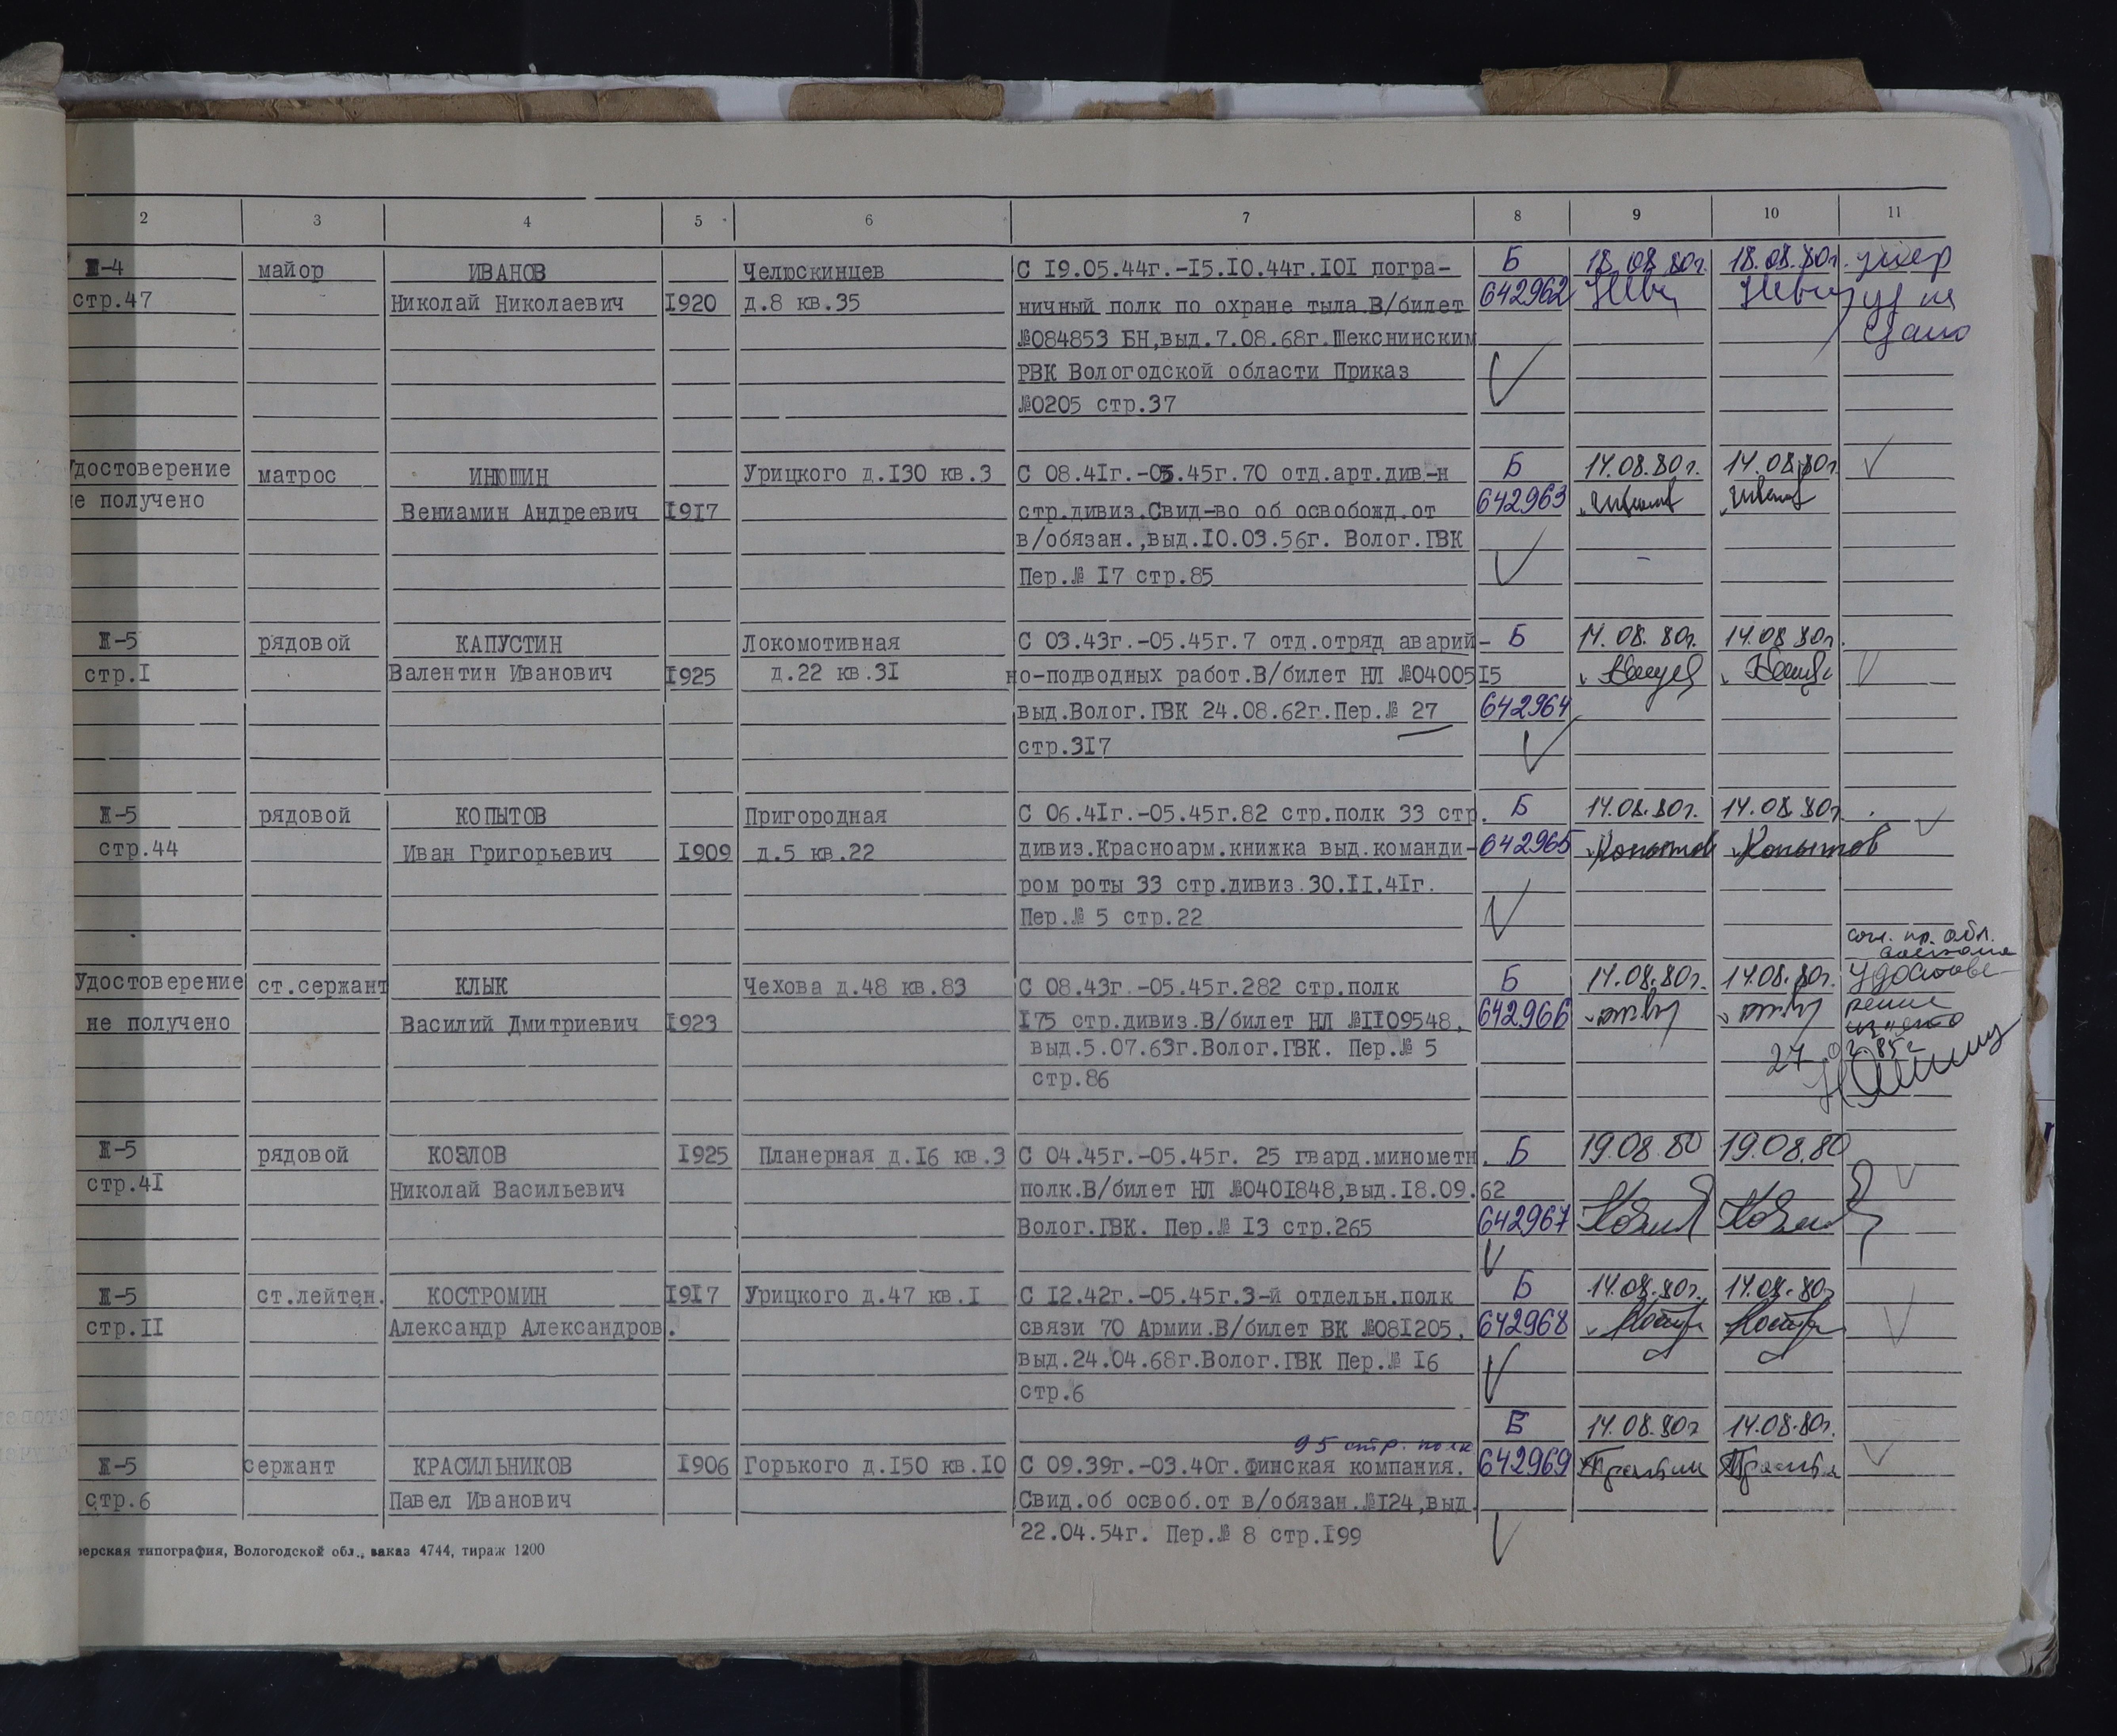 2 3 4 5 6 7 8 9 10 11
майор ИВАНОВ Челюскинцев С 19.05.44г.-15.10.44г.101 погра- Б 18.08.80г. 18.08.80г. умер
стр.47 Николай Николаевич 1920 д.8 кв.35 ничный полк по охране тыла.В/билет 642962
№084853 БН,выд.7.08.68г.Шекснинским
РВК Вологодской области Приказ
№0205 стр.37
Удостоверение матрос ИНЮШИН Урицкого д.130 кв.3 С 08.41г.-05.45г.70 отд.арт.див-н Б 14.08.80г. 14.08.80г.
не получено Вениамин Андреевич 1917 стр.дивиз.Свид-во об освобожд.от 642963
в/обязан.,выд.10.03.56г. Волог.ГВК
Пер.№ 17 стр.85
рядовой КАПУСТИН Локомотивная С 03.43г.-05.45г.7 отд.отряд аварий- Б 14.08.80г. 14.08.80г.
стр.1 Валентин Иванович 1925 д.22 кв.31 но-подводных работ.В/билет НЛ №0400515
выд.Волог.ГВК 24.08.62г.Пер.№ 27 642964
стр.317
рядовой КОПЫТОВ Пригородная С 06.41г.-05.45г.82 стр.полк 33 стр. Б 14.08.80г. 14.08.80г.
стр.44 Иван Григорьевич 1909 д.5 кв.22 дивиз.Красноарм.книжка выд.команди- 642965 Копытов Копытов
ром роты 33 стр.дивиз.30.11.41г.
Пер.№ 5 стр.22
Удостоверение ст.сержант КЛЫК Чехова д.48 кв.83 С 08.43г.-05.45г.282 стр.полк Б 14.08.80г. 14.08.80г. удостове-
не получено Василий Дмитриевич 1923 175 стр.дивиз.В/билет НЛ №1109548, 642966 рение
выд.5.07.63г.Волог.ГВК. Пер.№ 5
стр.86
рядовой КОЗЛОВ 1925 Планерная д.16 кв.3 С 04.45г.-05.45г. 25 гвард.минометн. Б 19.08.80 19.08.80
стр.41 Николай Васильевич полк.В/билет НЛ №0401848,выд.18.09.62
Волог.ГВК. Пер.№ 13 стр.265 642967
ст.лейтен. КОСТРОМИН 1917 Урицкого д.47 кв.1 С 12.42г.-05.45г.3-й отдельн.полк Б 14.08.80г. 14.08.80г
стр.11 Александр Александров. связи 70 Армии.В/билет ВК №081205, 642968
выд.24.04.68г.Волог.ГВК Пер.№ 16
стр.6
Б 14.08.80г 14.08.80г.
95 стр. полк
сержант КРАСИЛЬНИКОВ 1906 Горького д.150 кв.10 С 09.39г.-03.40г.финская компания. 642969
стр.6 Павел Иванович Свид.об освоб.от в/обязан.№124,выд.
22.04.54г. Пер.№ 8 стр.199
типография, Вологодской обл., заказ 4744, тираж 1200